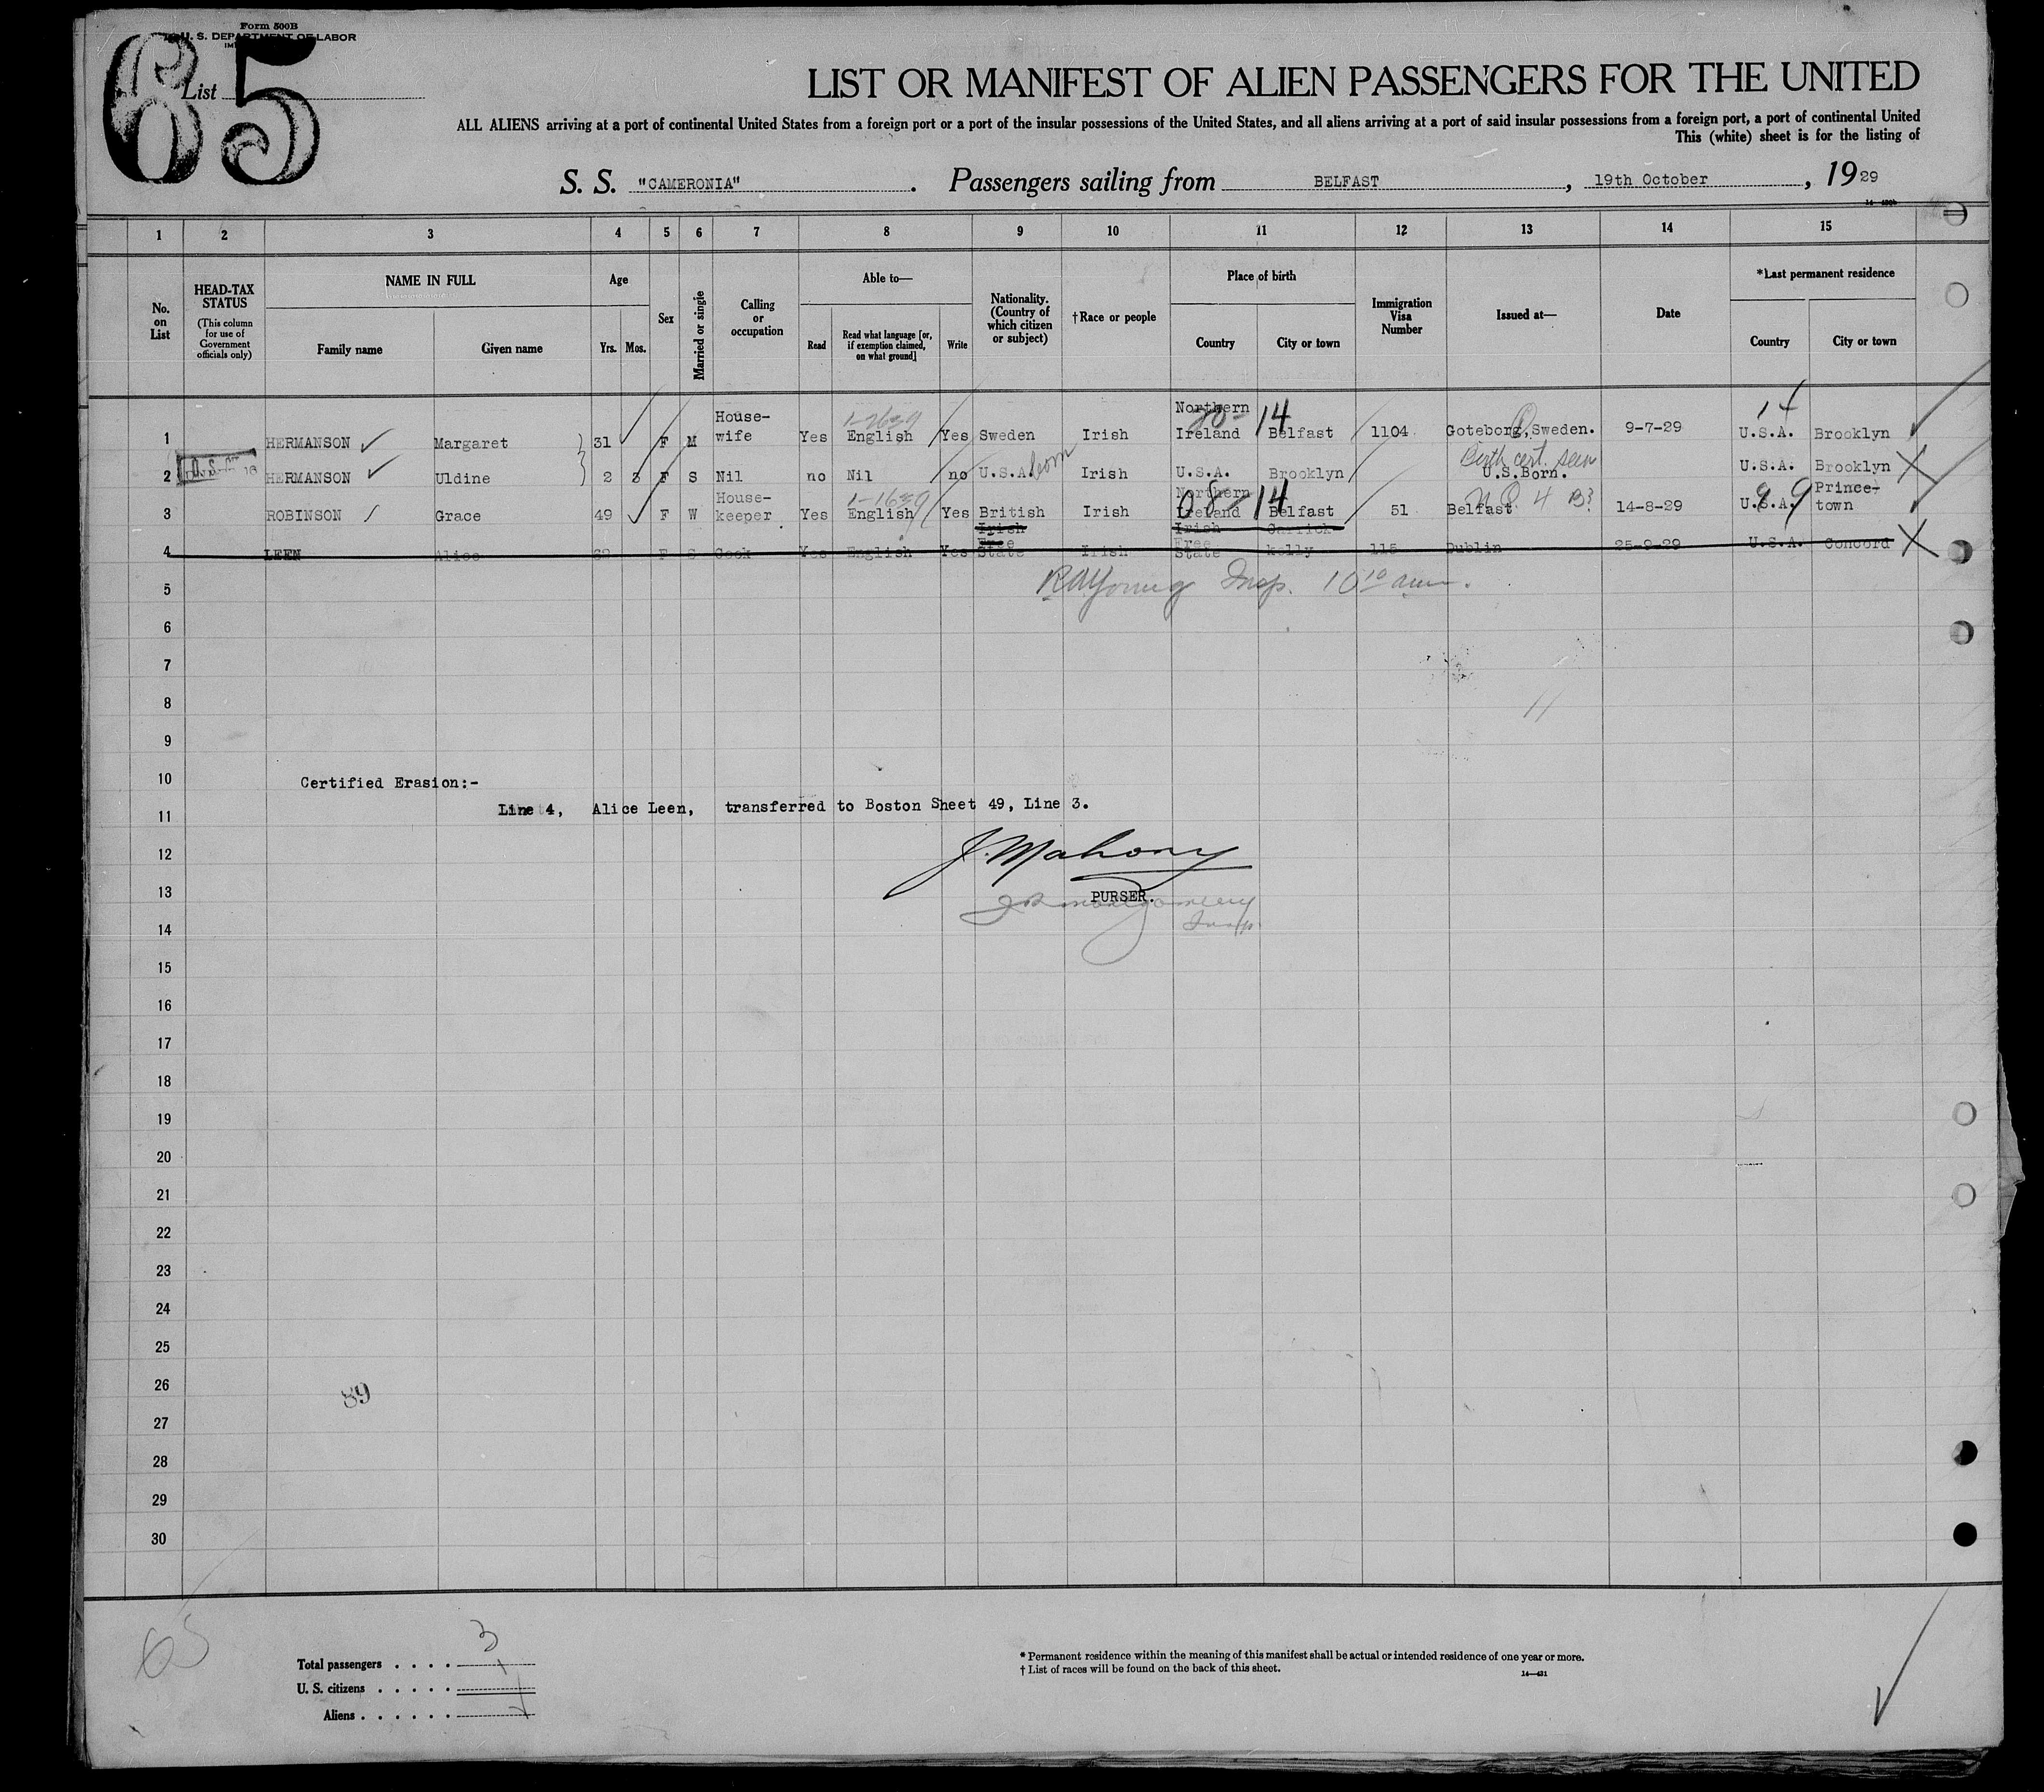 Form 500B
U. S. DEPARTMENT OF LABOR
65
List
LIST OR MANIFEST OF ALIEN PASSENGERS FOR THE UNITED
ALL ALIENS arriving at a port of continental United States from a foreign port or a port of the insular possessions of the United States, and all aliens arriving at a port of said insular possessions from a foreign port, a port of continental United
This (white) sheet is for the listing of
S. S. "CAMERONIA" . Passengers sailing from BELFAST , 19th October , 1929
1 2 3 4 5 6 7 8 9 10 11 12 13 14 15
No. on List
HEAD-TAX STATUS
(This column for use of Government officials only)
NAME IN FULL
Family name Given name
Age
Yrs. Mos.
Sex
Married or single
Calling or occupation
Able to—
Read
Read what language [or, if exemption claimed, on what ground]
Write
Nationality. (Country of which citizen or subject)
†Race or people
Place of birth
Country City or town
Immigration Visa Number
Issued at—
Date
*Last permanent residence
Country City or town
1 HERMANSON Margaret 31 F M House-wife Yes English Yes Sweden Irish Northern Ireland Belfast 1104 Goteborg, Sweden. 9-7-29 U.S.A. Brooklyn
20-14 14
2 HERMANSON Uldine 2 3 F S Nil no Nil no U.S.A. born Irish U.S.A. Brooklyn U.S.Born. U.S.A. Brooklyn
Birth cert. seen
3 ROBINSON Grace 49 F W House-keeper Yes English Yes British Irish Northern Ireland Belfast 51 Belfast 14-8-29 U.S.A. Prince-town
08-14 4 99
4 LEEN Alice F S Cook Yes English Yes Irish Free State Irish Irish Free State Carrick kelly 115 Dublin 25-9-29 U.S.A. Concord
5 RAYoung Insp. 10 10 am.
6
7
8
9
10 Certified Erasion:-
11 Line 4, Alice Leen, transferred to Boston Sheet 49, Line 3.
12 J. Mahony
13 PURSER.
JR Montgomery
14 Insp.
15
16
17
18
19
20
21
22
23
24
25
26 89
27
28
29
30
65
Total passengers . . . . 3
U. S. citizens . . . . .
Aliens . . . . . .
* Permanent residence within the meaning of this manifest shall be actual or intended residence of one year or more.
† List of races will be found on the back of this sheet.
14—431